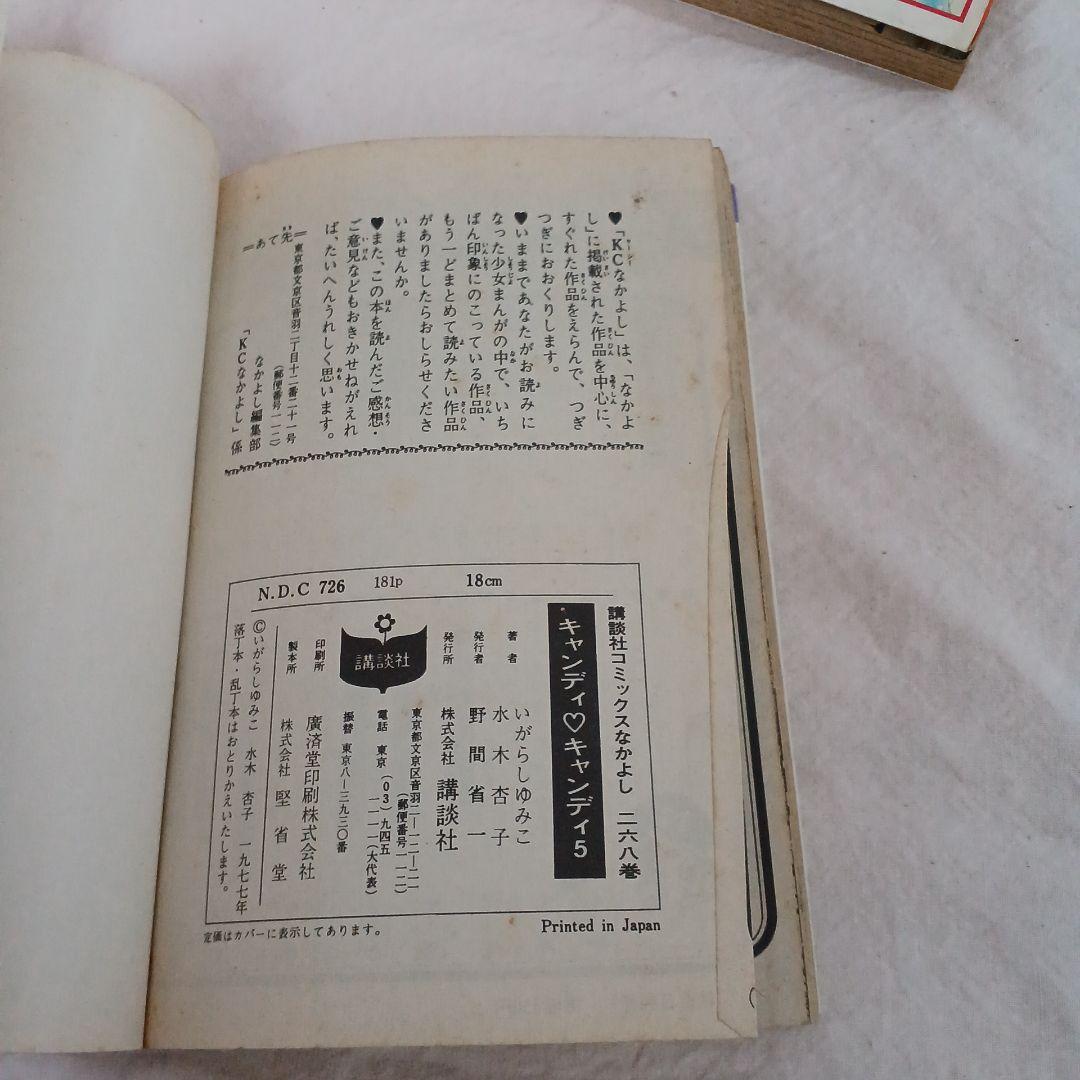 ♥「KCなかよし」は、「なかよ
し」に掲載された作品を中心に、
すぐれた作品をえらんで、つぎ
つぎにおおくりします。
♥いままであなたがお読みに
なった少女まんがの中で、いち
ばん印象にのこっている作品、
もう一どまとめて読みたい作品
がありましたらおしらせくださ
いませんか。
♥また、この本を読んだご感想・
ご意見などもおきかせねがえれ
ば、たいへんうれしく思います。
＝あて先＝
東京都文京区音羽二丁目十二番二十一号
(郵便番号一一二)
なかよし編集部
「KCなかよし」係
N.D.C 726 181p 18cm
講談社コミックスなかよし 二六八巻
キャンディ♡キャンディ5
著者 いがらしゆみこ
水木杏子
発行者 野間省一
発行所 株式会社 講談社
東京都文京区音羽二―一二―二一
(郵便番号一一二)
電話 東京(03)九四五
一一一一(大代表)
振替 東京八―三九三〇番
講談社
印刷所 廣済堂印刷株式会社
製本所 株式会社 堅省堂
©いがらしゆみこ 水木杏子 一九七七年
落丁本・乱丁本はおとりかえいたします。
定価はカバーに表示してあります。
Printed in Japan